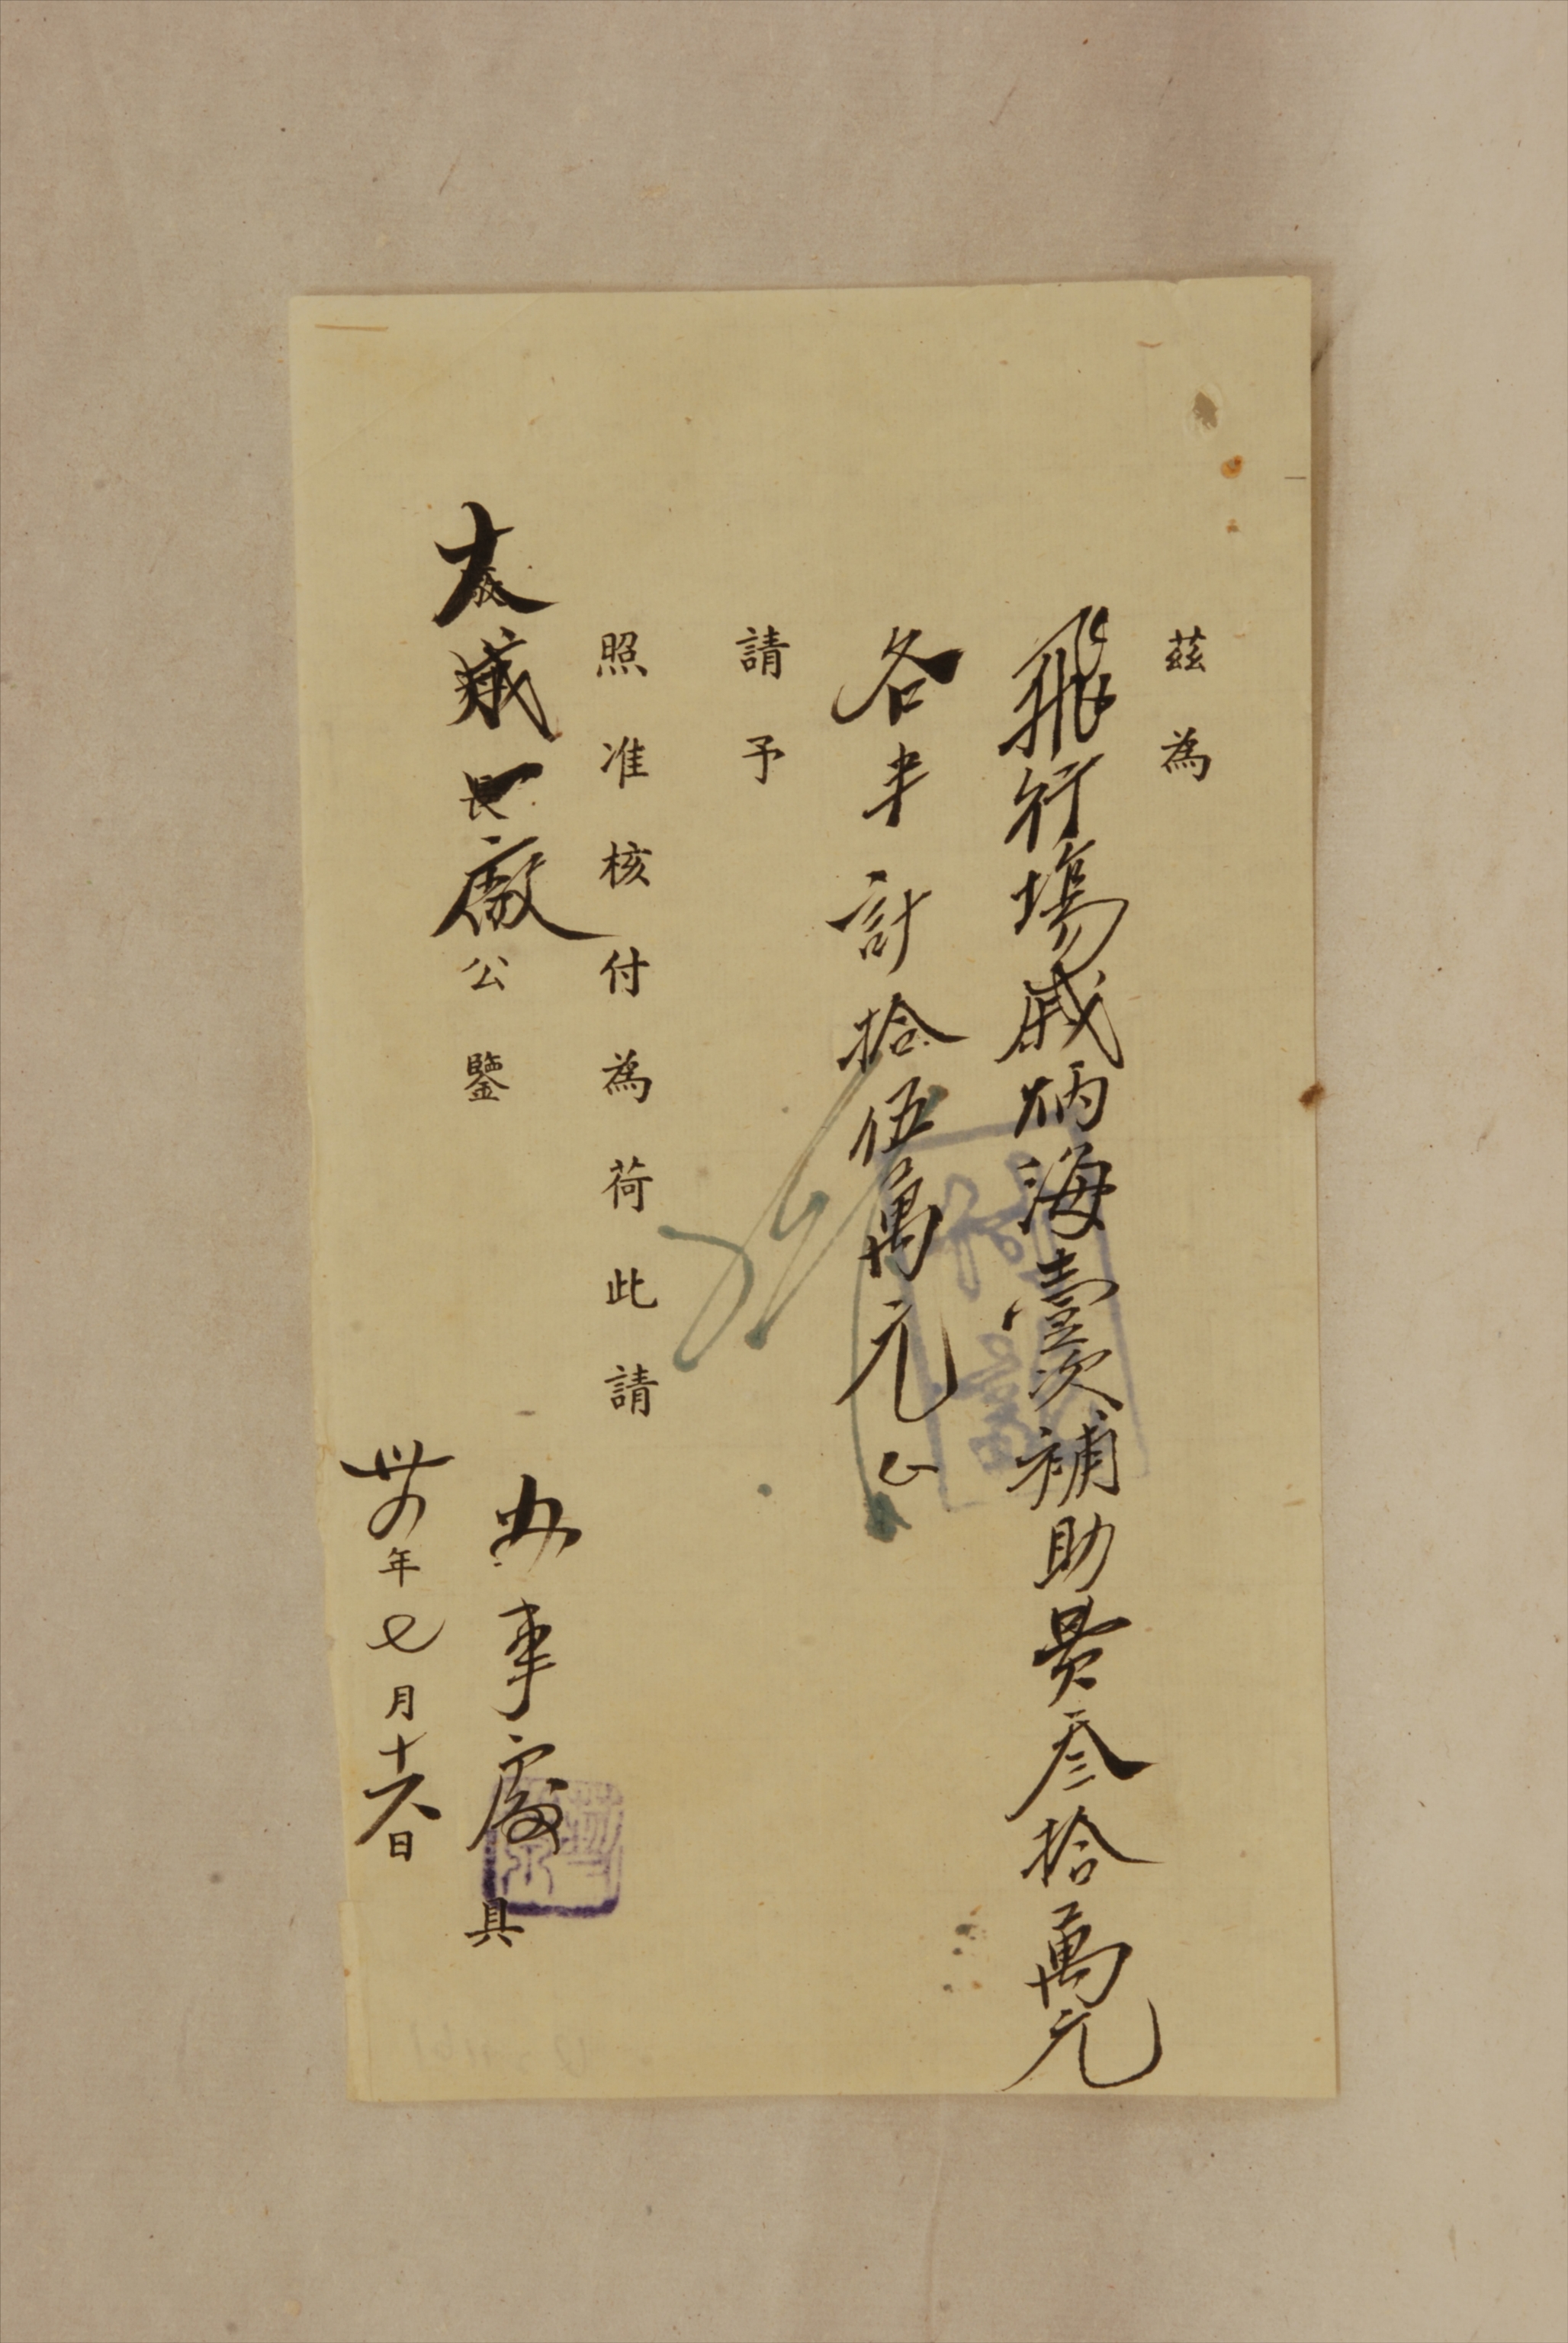 茲為
飛行場戚炳海壹次補助費叁拾萬元
各半計拾伍萬元正
請予
照准核付為荷此請
大成廠公鑒
办事處具
卅四年七月十六日